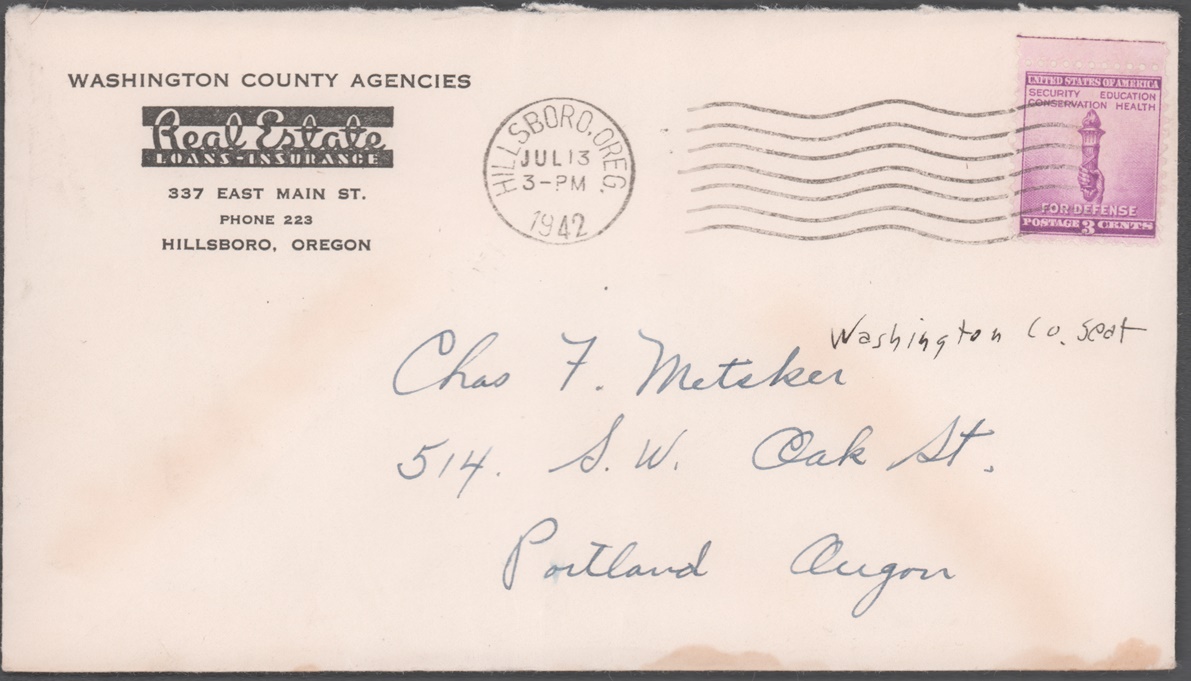 WASHINGTON COUNTY AGENCIES
Real Estate
LOANS-INSURANCE
337 EAST MAIN ST.
PHONE 223
HILLSBORO, OREGON
HILLSBORO, OREG.
JUL 13
3-PM
1942
UNITED STATES OF AMERICA
SECURITY EDUCATION
CONSERVATION HEALTH
FOR DEFENSE
POSTAGE 3 CENTS
Washington Co. Seat
Chas F. Metsker
514. S.W. Oak St.
Portland Oregon